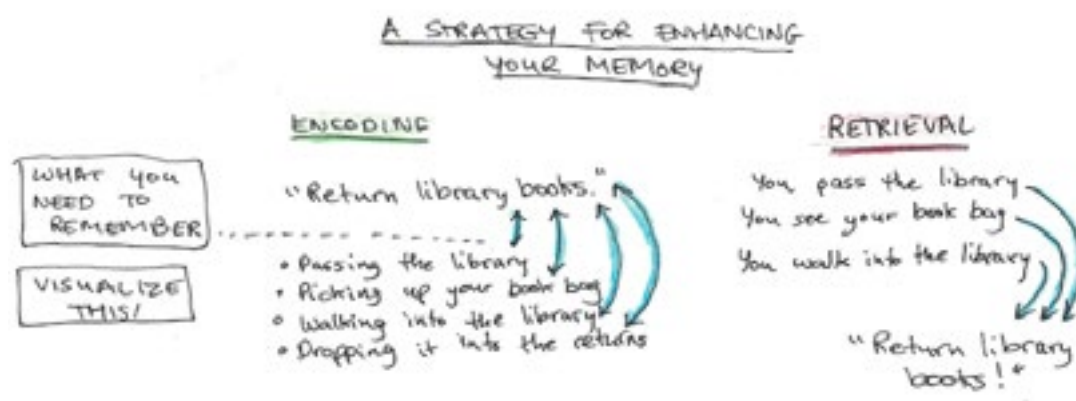 A STRATEGY FOR ENHANCING
YOUR MEMORY
ENCODING
WHAT YOU
NEED TO
REMEMBER
VISUALIZE
THIS!
"Return library books."
• Passing the library
• Picking up your book bag
• Walking into the library
• Dropping it into the returns
RETRIEVAL
You pass the library
You see your book bag
You walk into the library
"Return library
books!"